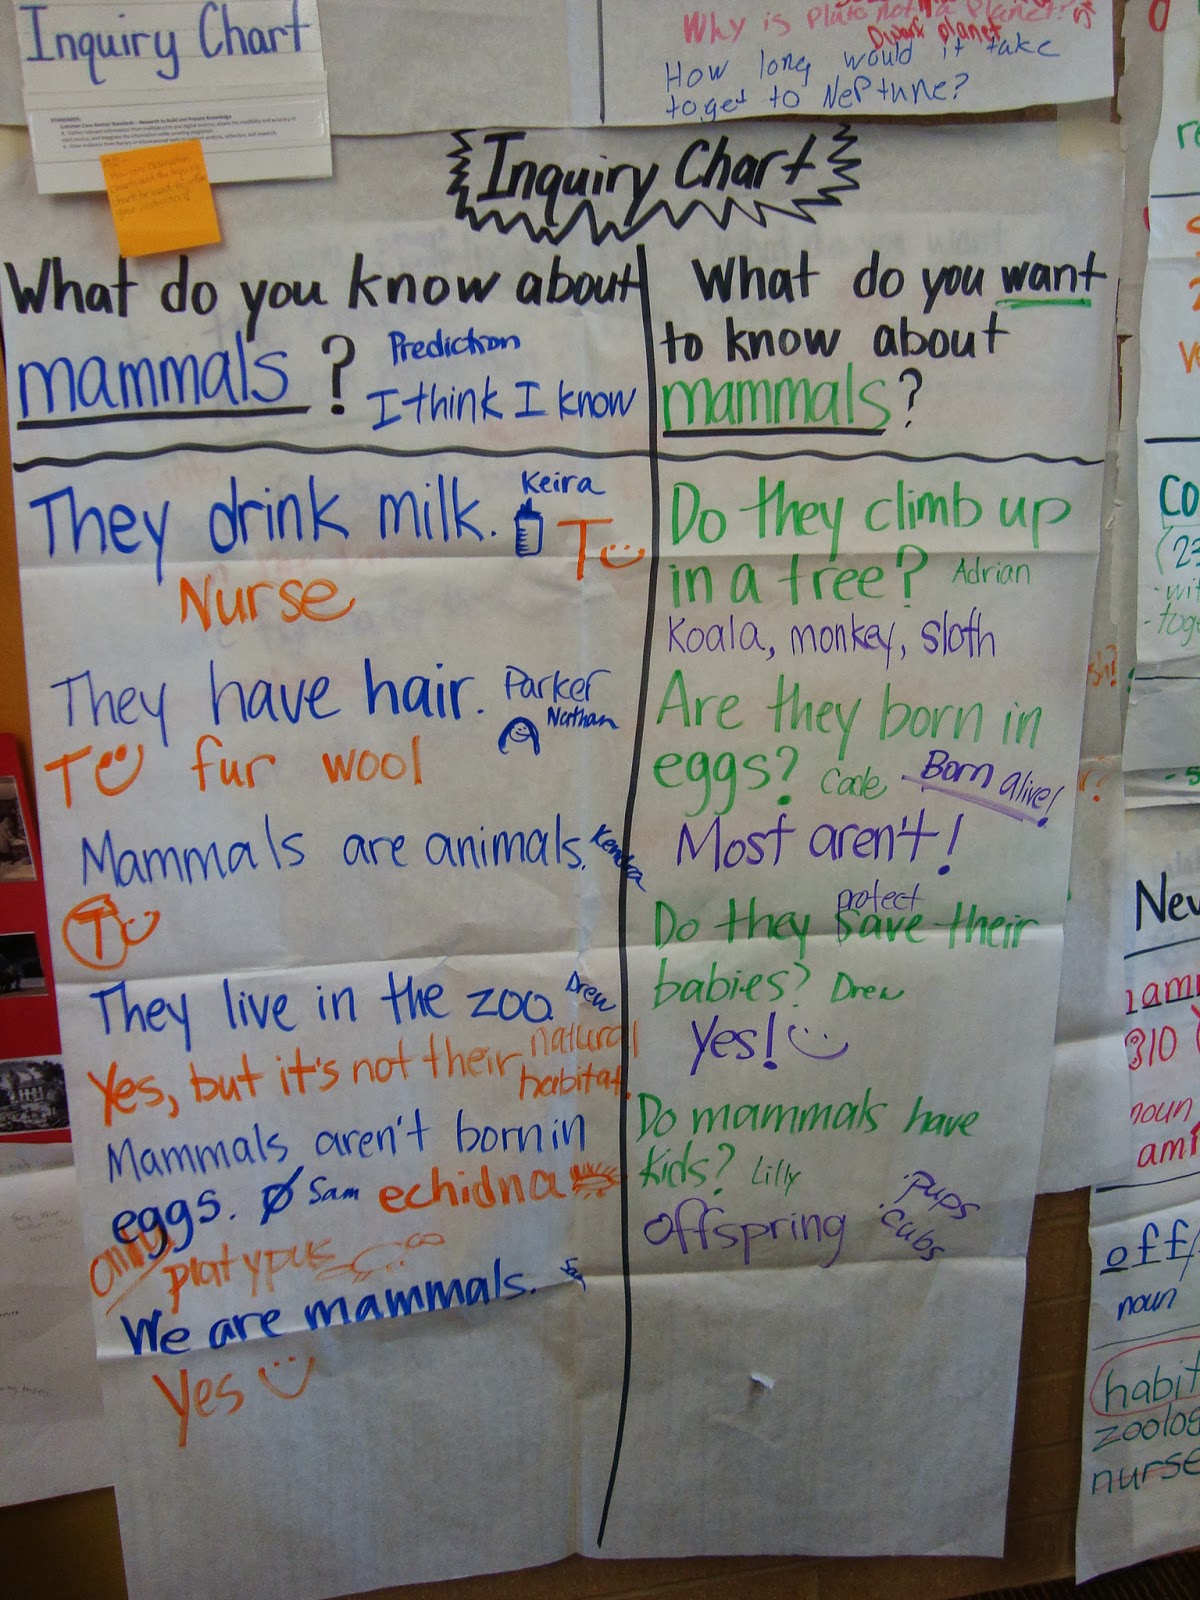 Inquiry Chart
STANDARDS:
Common Core Anchor Standards – Research to Build and Present Knowledge
Why is Pluto not a Planet?
Dwarf planet
How long would it take
to get to Neptune?
Inquiry Chart
What do you know about
mammals ?
Prediction
I think I know
They drink milk. Keira
T
Nurse
They have hair. Parker
Nathan
T fur wool
Mammals are animals. Kendra
T
They live in the zoo. Drew
Yes, but it's not their natural
habitat.
Mammals aren't born in
eggs. Sam echidna
platypus
We are mammals.
Yes
What do you want
to know about
mammals?
Do they climb up
in a tree? Adrian
Koala, monkey, sloth
Are they born in
eggs? Cade Born alive!
Most aren't!
protect
Do they save their
babies? Drew
Yes!
Do mammals have
kids? Lilly
offspring
·pups
·cubs
Co
(23
-wit
-toge
Nev
310
noun
ami
off
noun
habit
zoolog
nurse